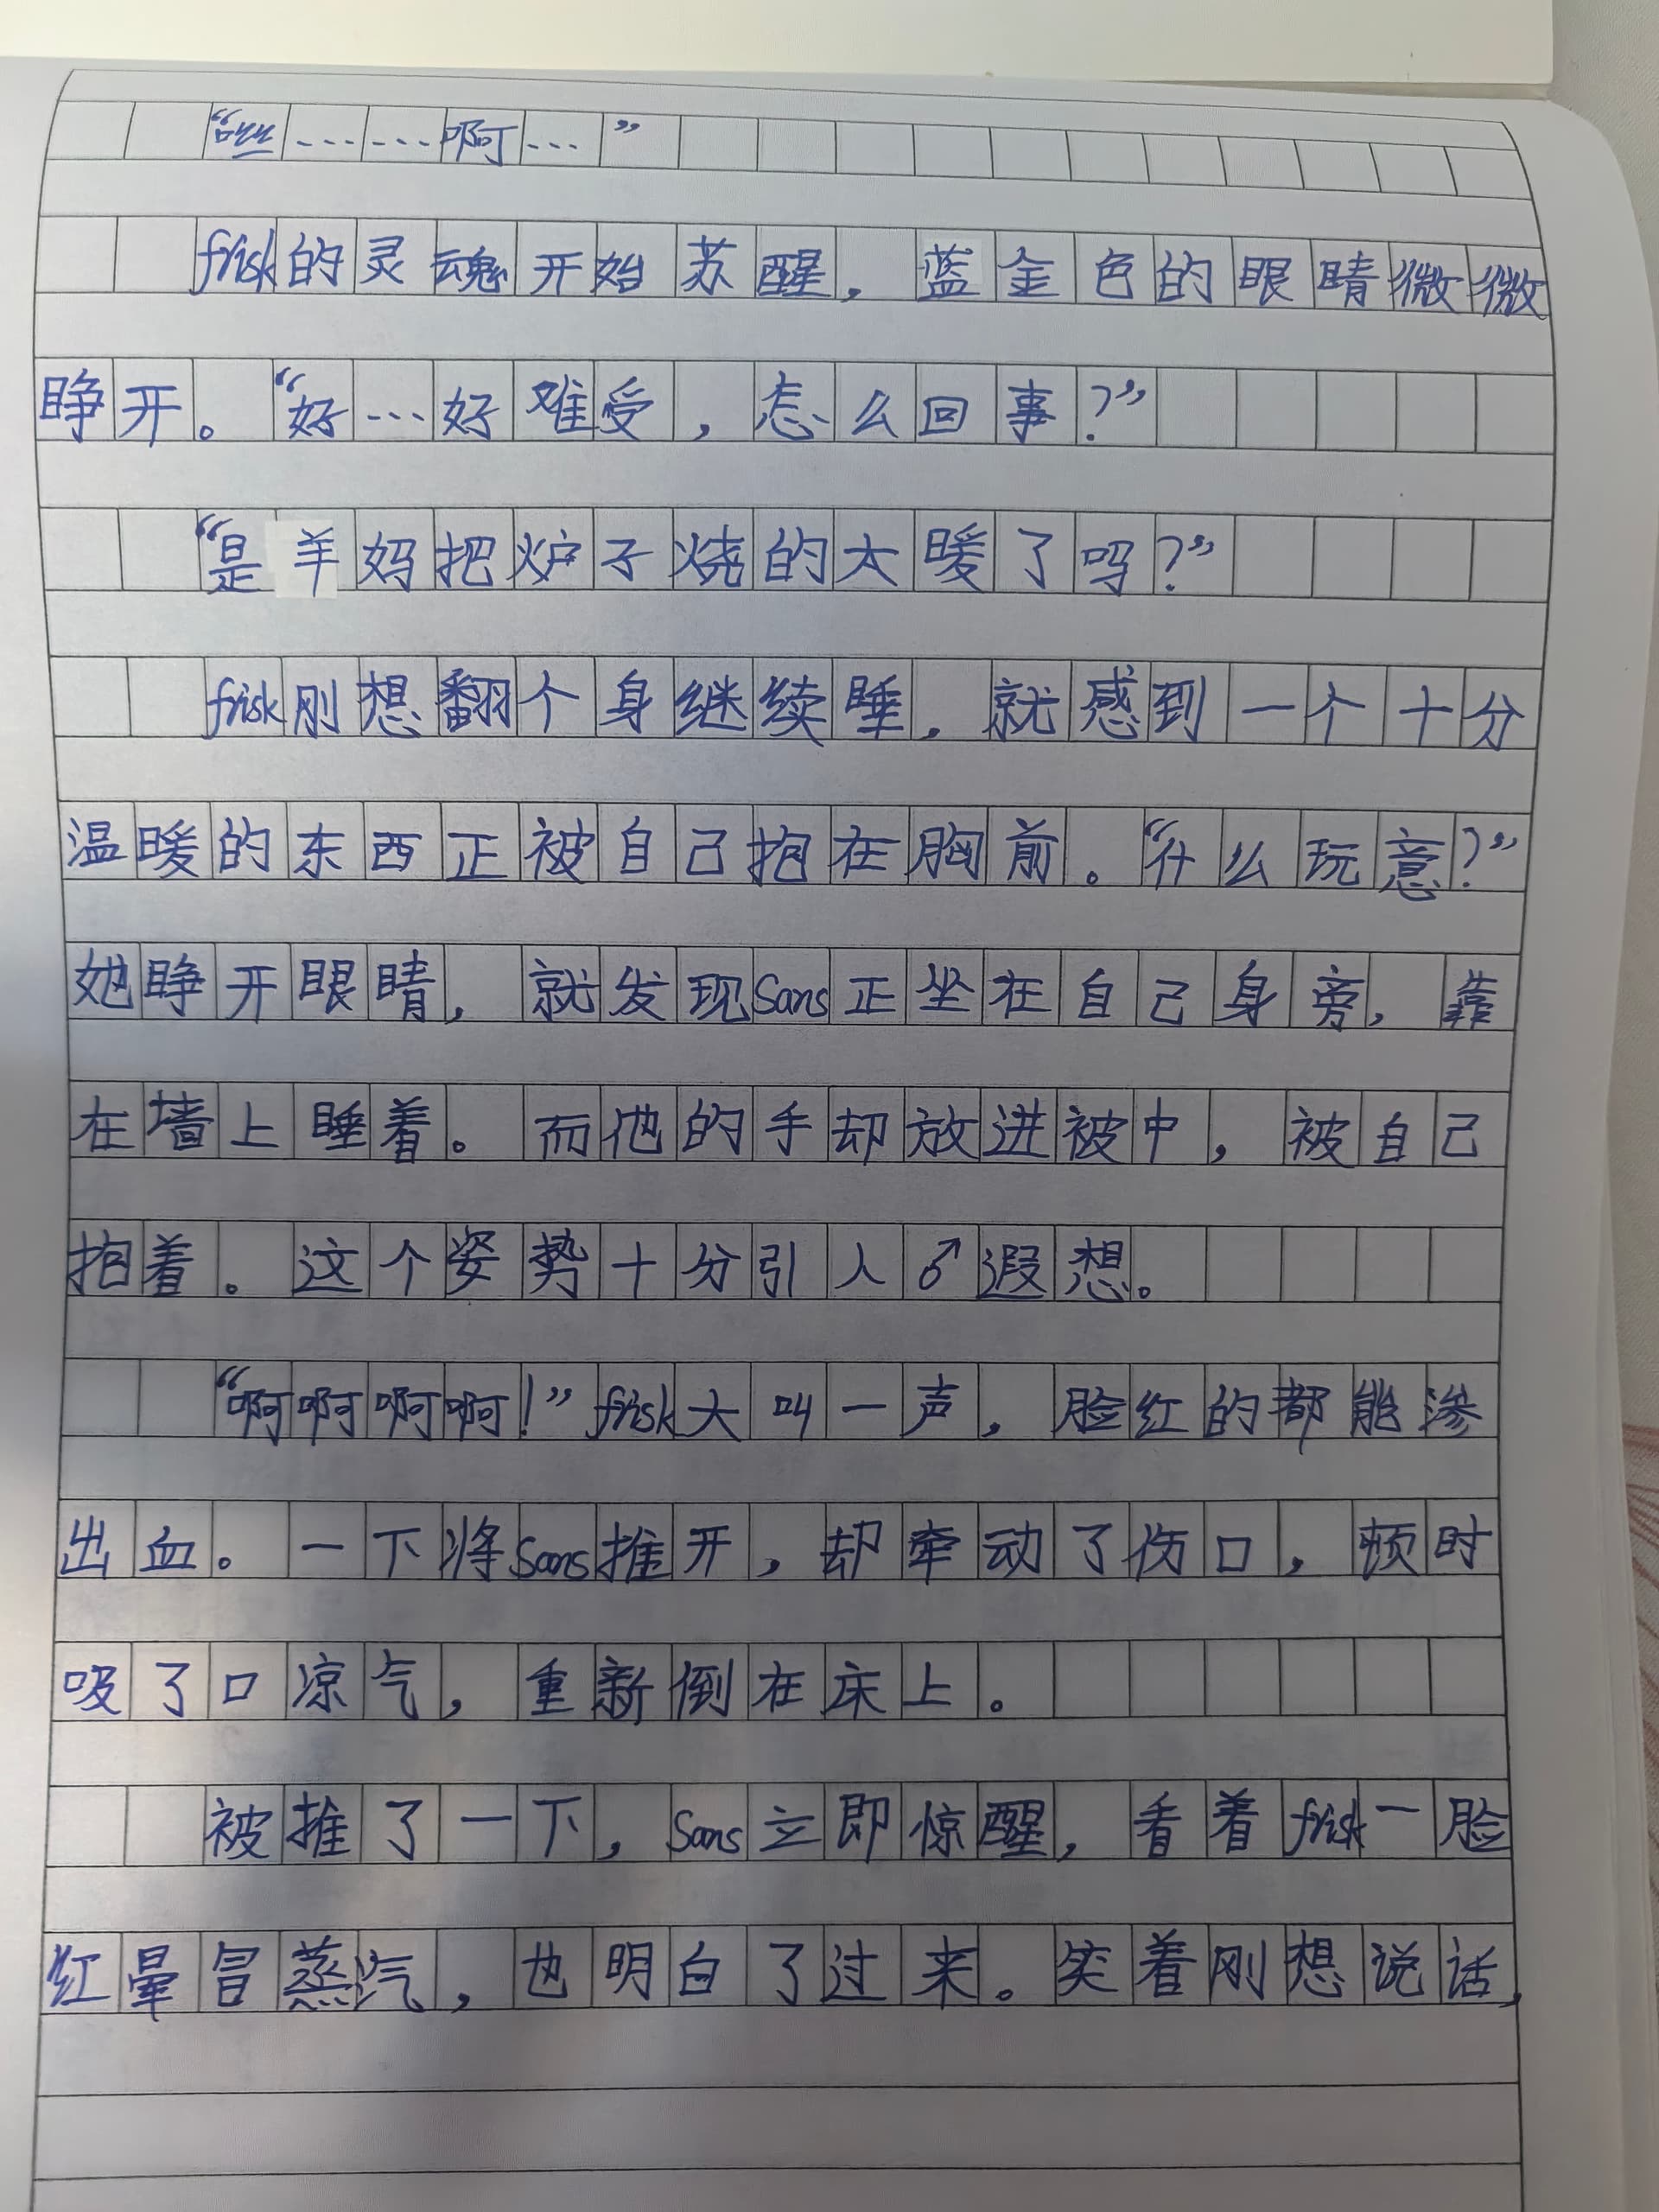 “咝……啊…”
frisk的灵魂开始苏醒，蓝金色的眼睛微微
睁开。“好…好难受，怎么回事？”
“是羊妈把炉子烧的太暖了吗？”
frisk刚想翻个身继续睡，就感到一个十分
温暖的东西正被自己抱在胸前。“什么玩意？”
她睁开眼睛，就发现Sans正坐在自己身旁，靠
在墙上睡着。而他的手却放进被中，被自己
抱着。这个姿势十分引人♂遐想。
“啊啊啊啊！”frisk大叫一声，脸红的都能渗
出血。一下将Sans推开，却牵动了伤口，顿时
吸了口凉气，重新倒在床上。
被推了一下，Sans立即惊醒，看着frisk一脸
红晕冒蒸汽，也明白了过来。笑着刚想说话，